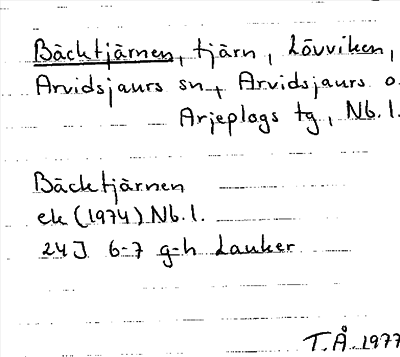 Bäcktjärnen, tjärn, Lövviken,
Arvidsjaurs sn, Arvidsjaurs o.
Arjeplogs tg, Nb. l.
Bäcktjärnen
ek (1974) Nb. l.
24J 6-7 g-h Lauker
T.Å. 1977